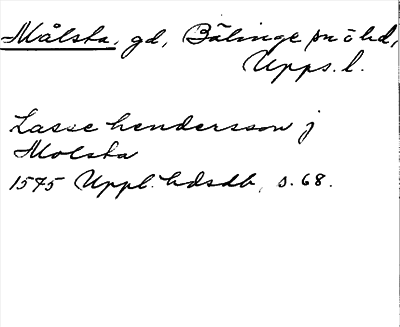 Målsta, gd, Bälinge sn o hd,
Upps. l.
Lasse hendersson j
Molsta
1575 Uppl. hdsdb, s. 68.